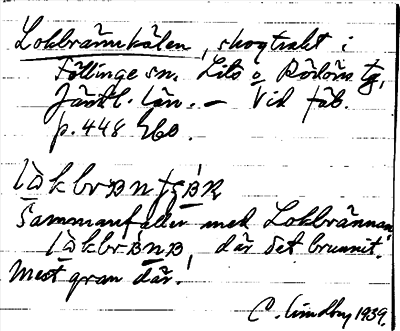 Lokbrännkälen, skogtrakt i
Föllinge sn. Lits o Rödöns tg,
Jämtl. län. — Vid fäb.
p. 448 260.
Sammanfaller med Lokbrännan,
där det brunnit.
Mest gran där.
C. Lindberg 1939.